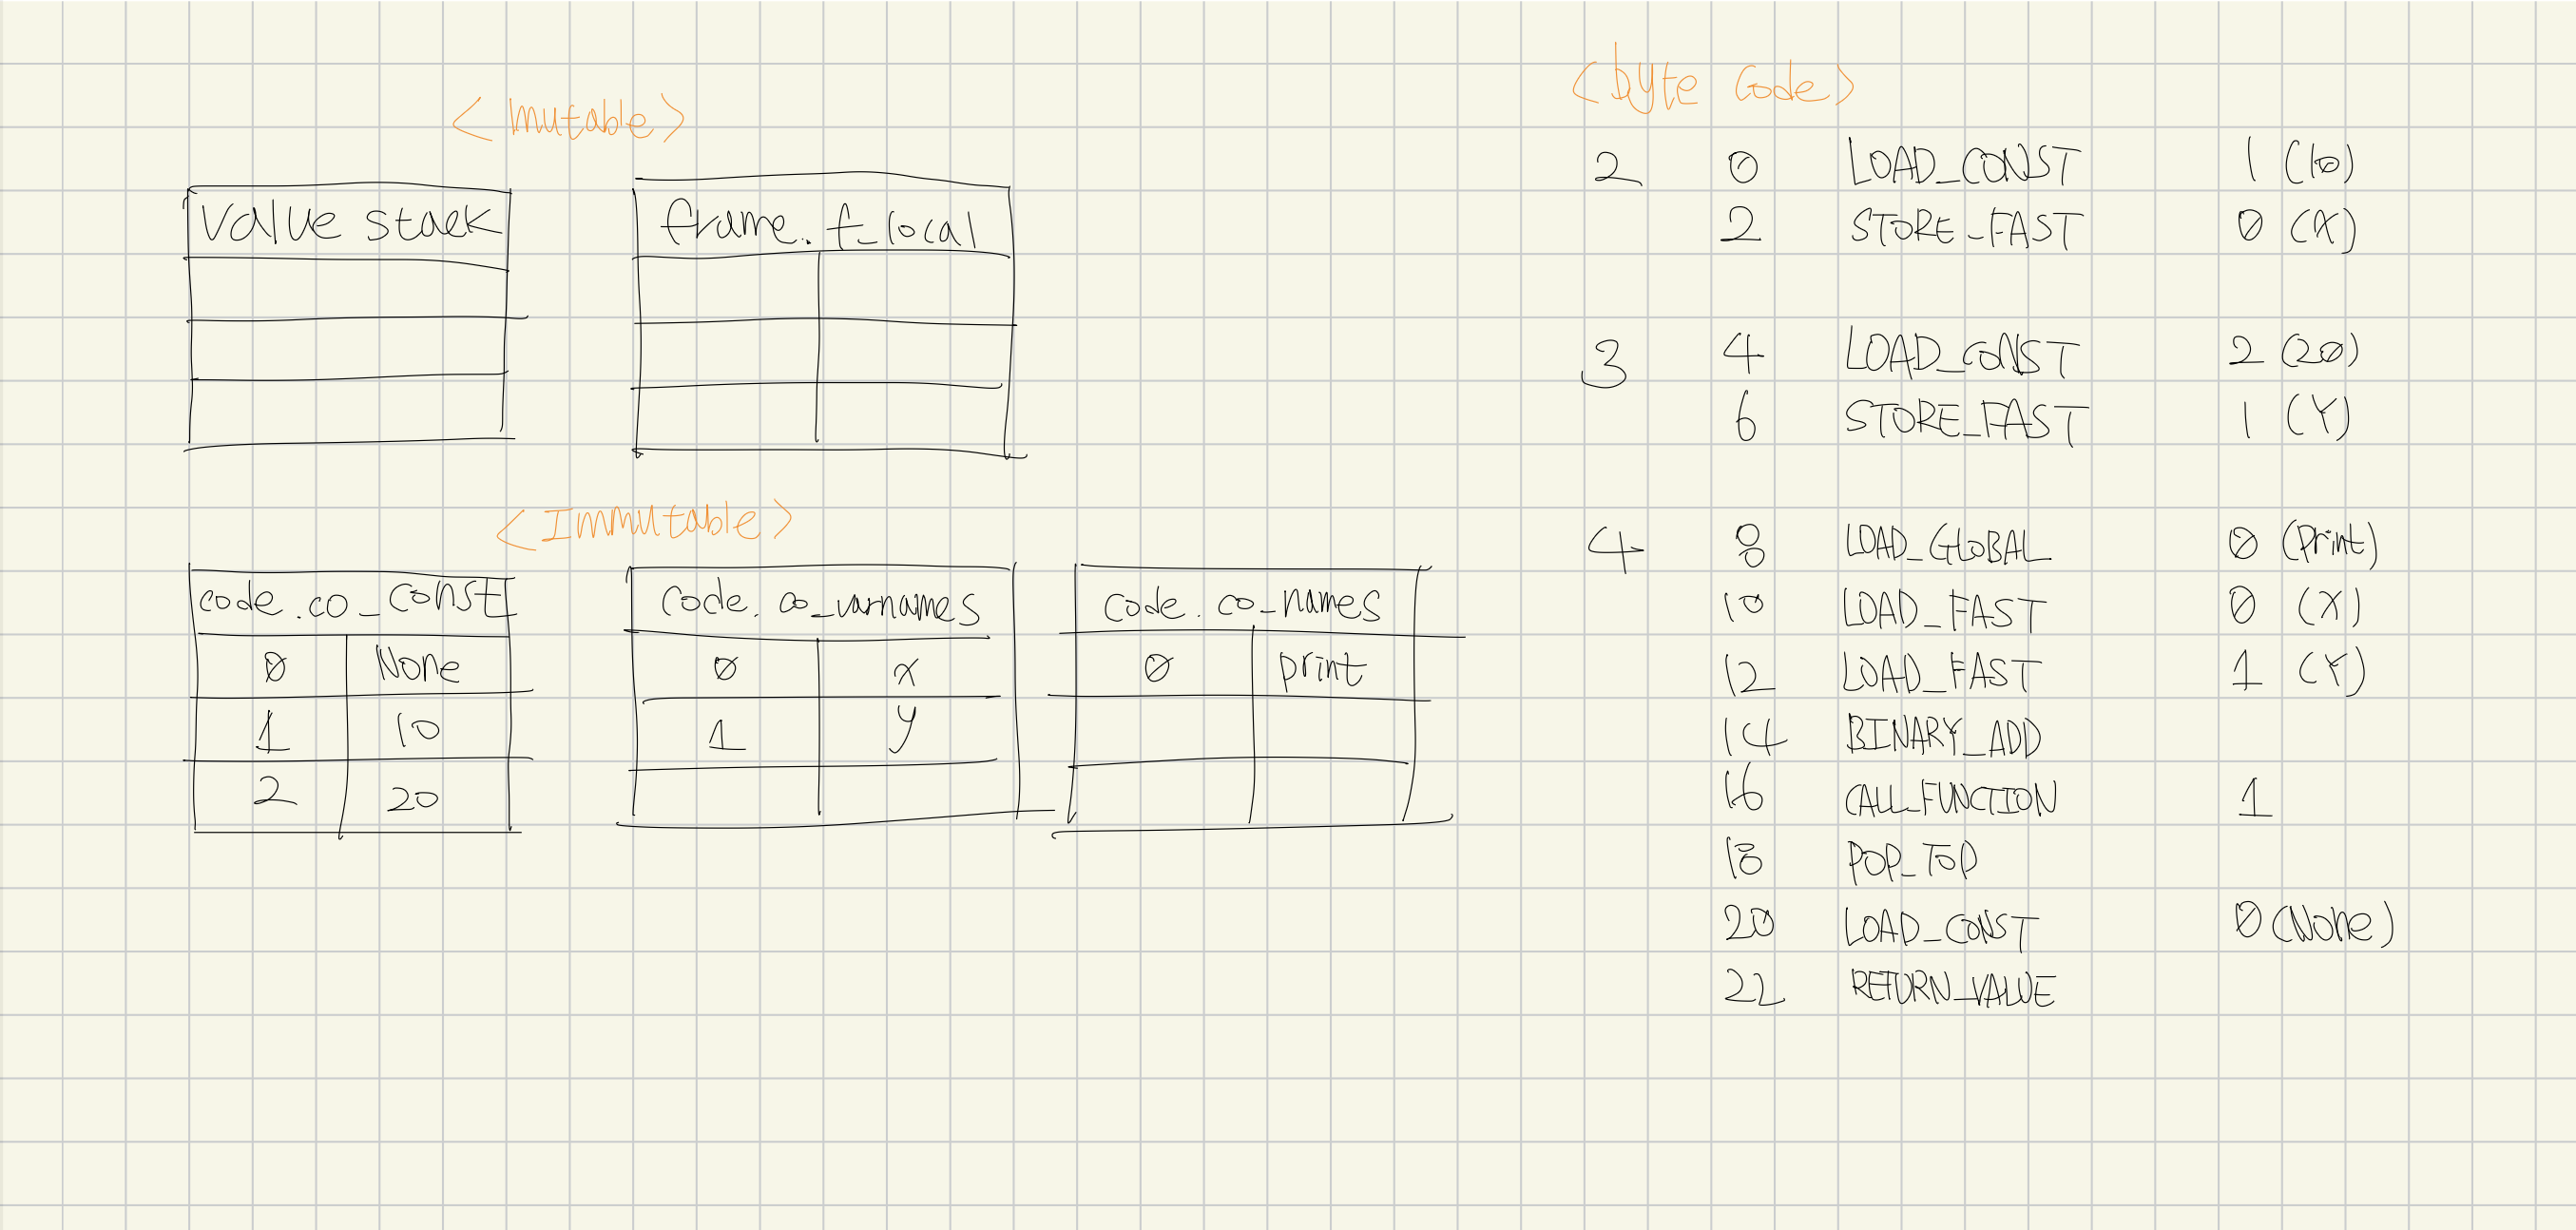 <mutable>
value stack
frame.f_local
<Immutable>
code.co_const
0 None
1 10
2 20
code.co_varnames
0 x
1 y
code.co_names
0 print
<byte Code>
2 0 LOAD_CONST 1 (10)
2 STORE_FAST 0 (X)
3 4 LOAD_CONST 2 (20)
6 STORE_FAST 1 (Y)
4 8 LOAD_GLOBAL 0 (Print)
10 LOAD_FAST 0 (X)
12 LOAD_FAST 1 (Y)
14 BINARY_ADD
16 CALL_FUNCTION 1
18 POP_TOP
20 LOAD_CONST 0 (None)
22 RETURN_VALUE